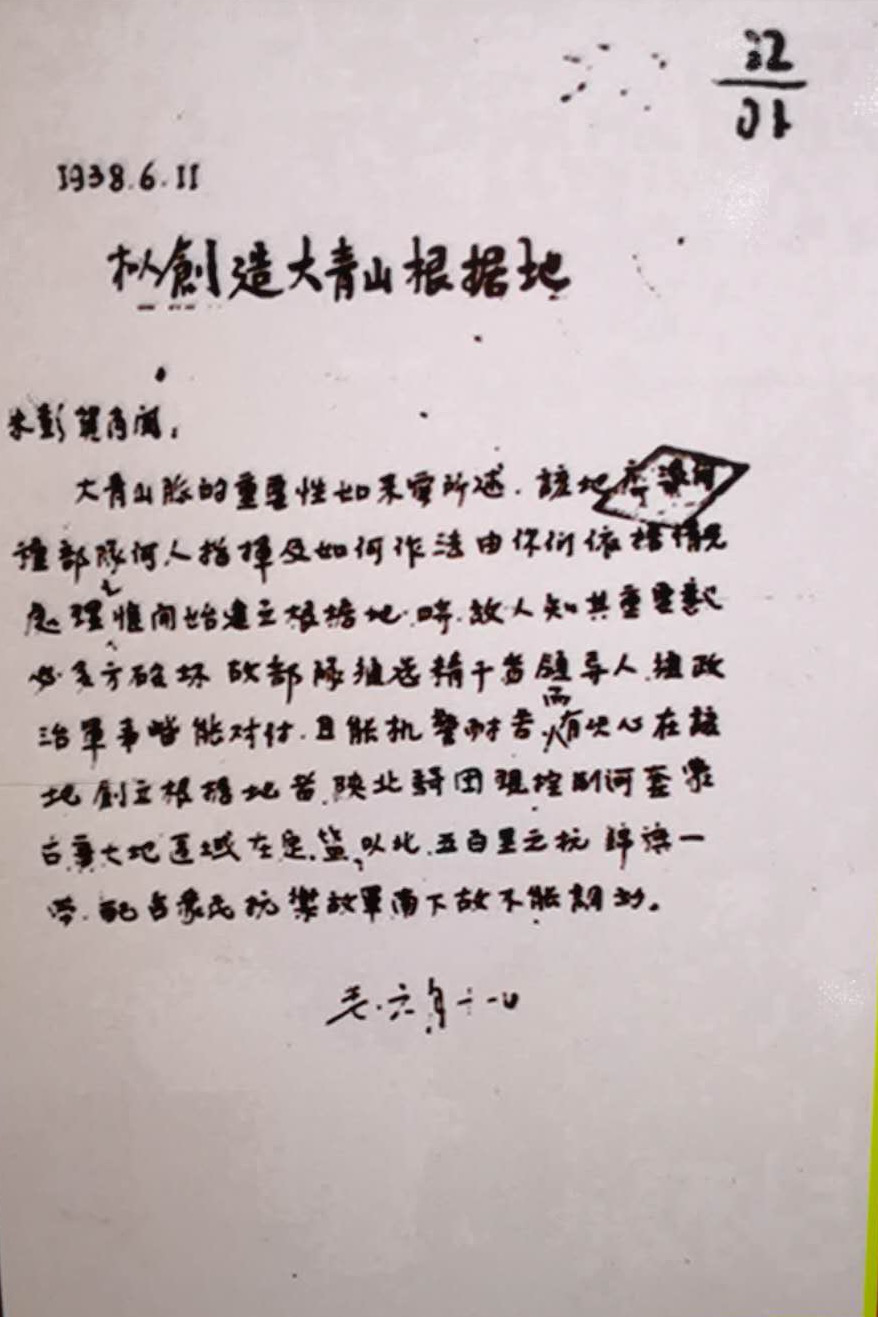 1938.6.11
拟創造大青山根据地
朱彭賀肖関：
大青山脉的重要性如来電所述．該地應派何
種部隊何人指揮及如何作法由你们依据情况
處理惟開始建立根据地時．敌人知其重要
必多方破坏故部隊須选精干者領导人．須政
治軍事皆能对付．且能机警耐苦，而有决心在該
地創立根据地者．陝北騎団現控制河套蒙
古廣大地区域在定．盐以北．五百里之杭錦旗一
帶．配合蒙民抗禦敌軍南下故不能調動。
毛．六月十一日